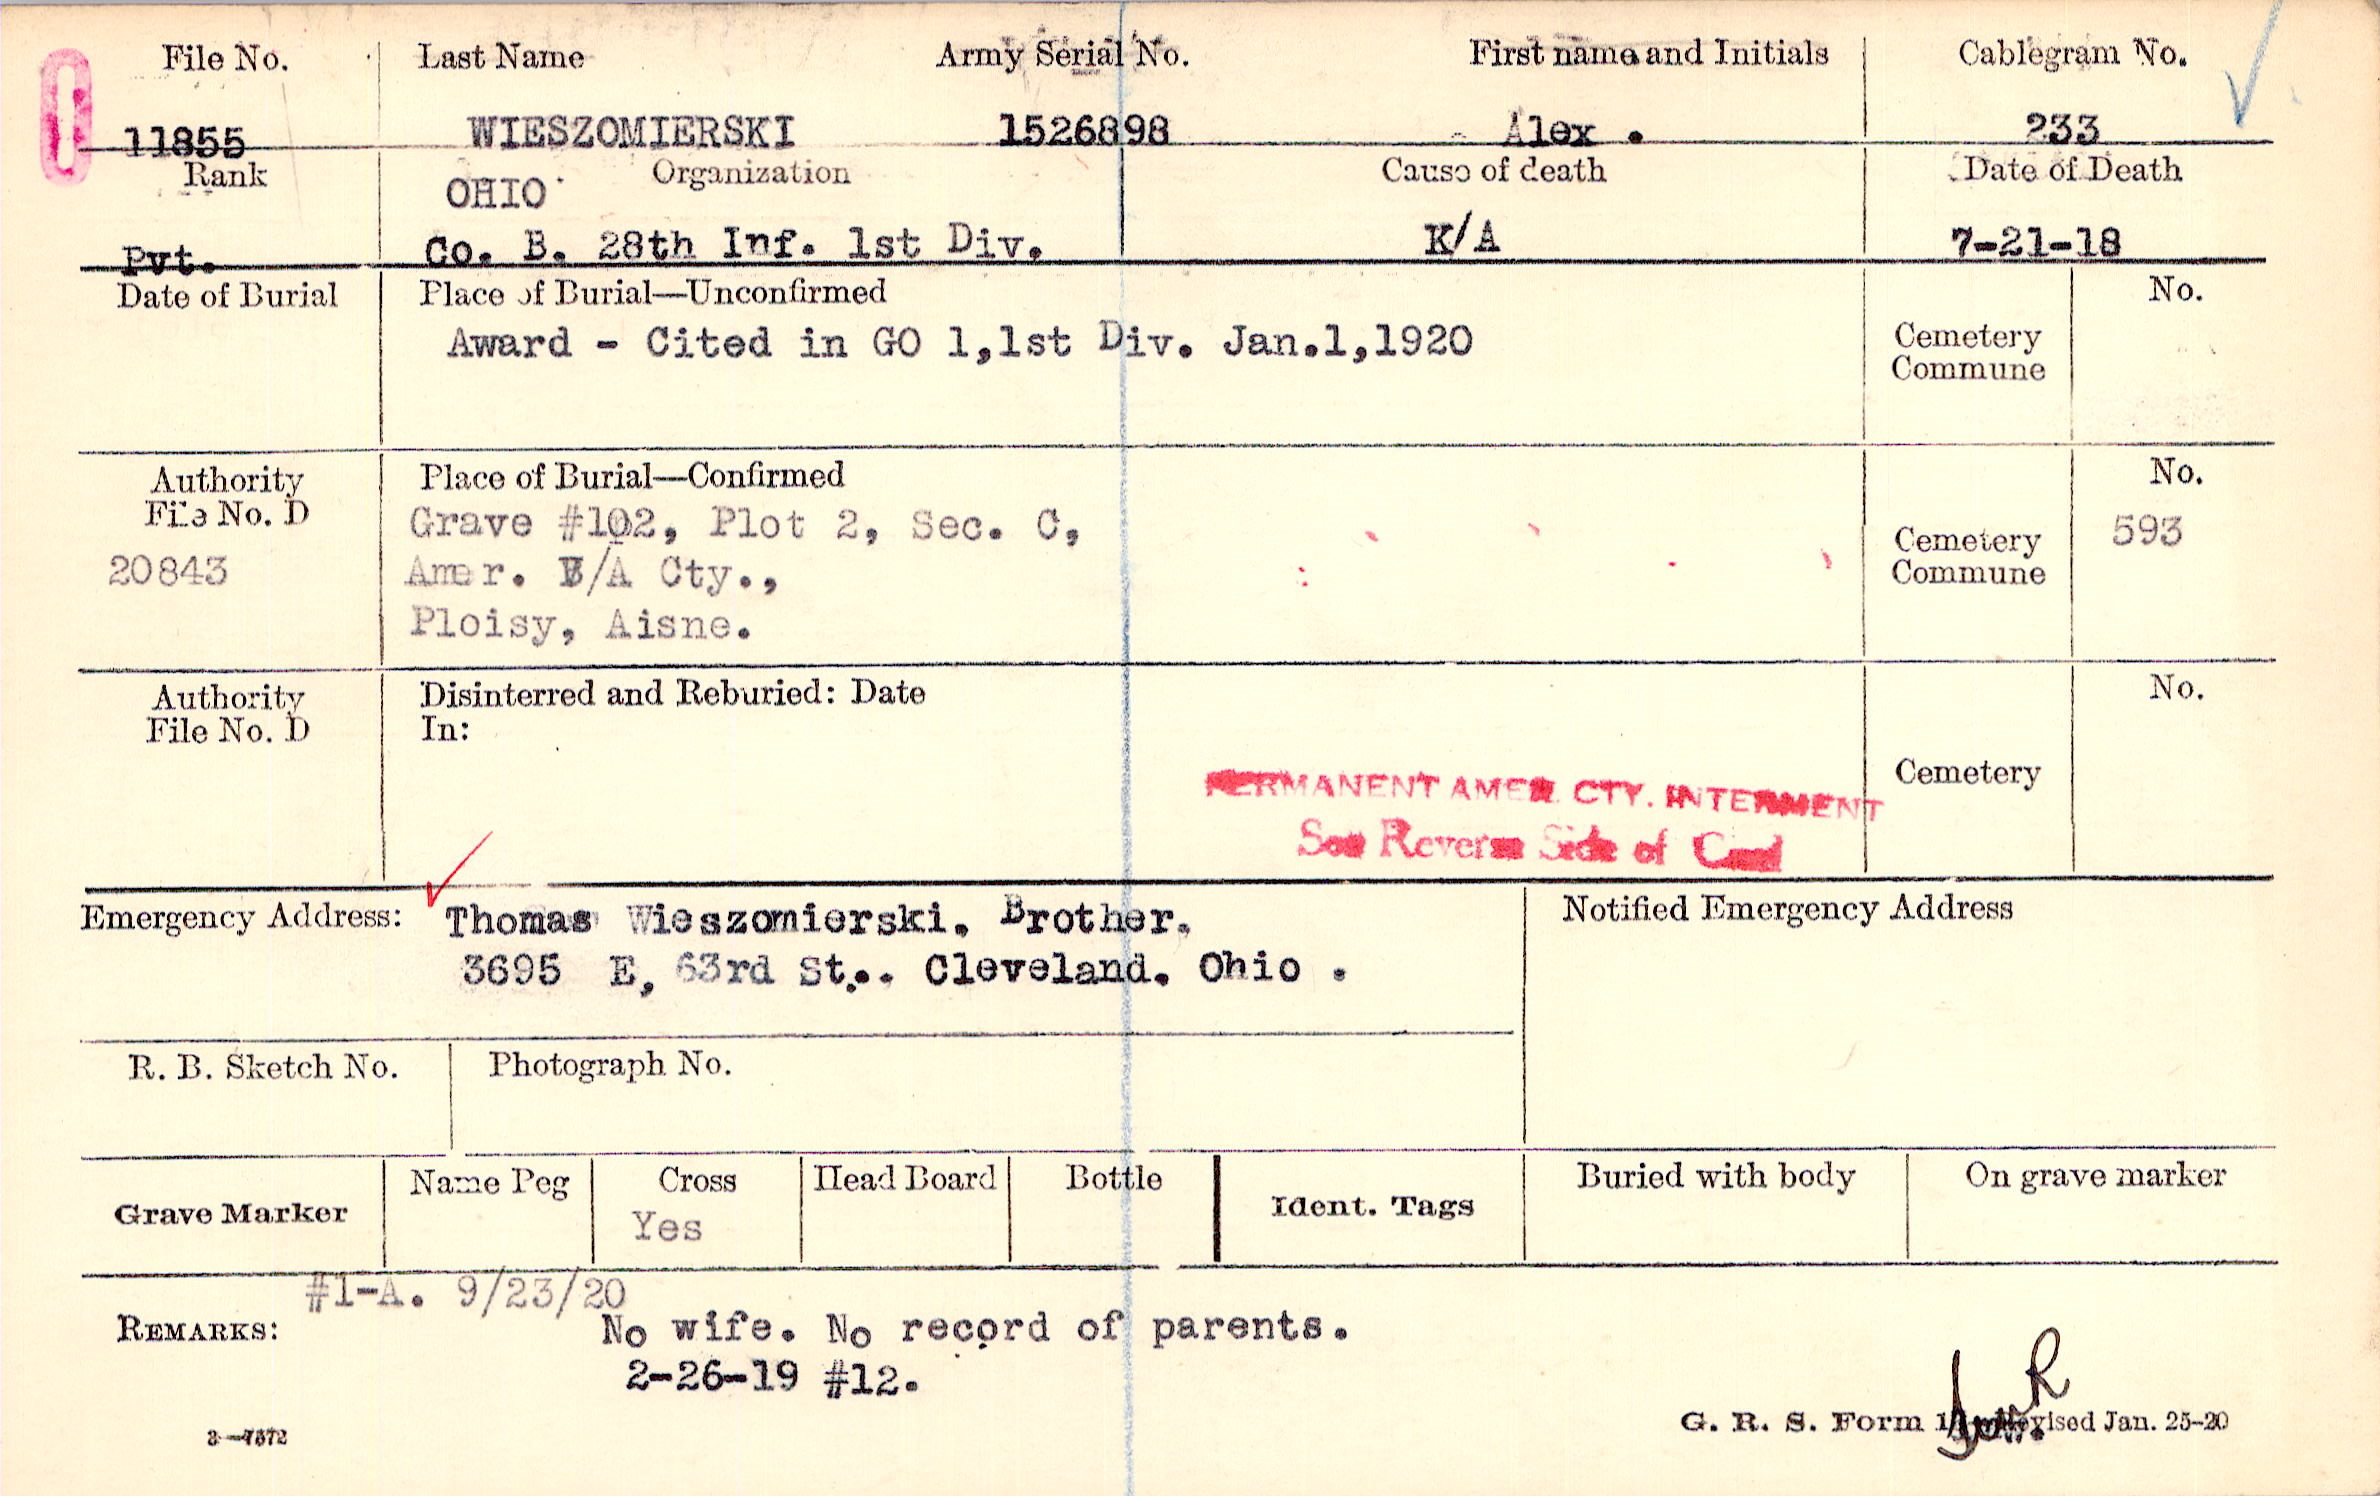 File No. Last Name Army Serial No. First name and Initials Cablegram No.
11855 WIESZOMIERSKI 1526898 Alex . 233
Rank OHIO Organization Cause of death Date of Death
Pvt. Co. B. 28th Inf. 1st Div. K/A 7-21-18
Date of Burial Place of Burial—Unconfirmed No.
Award - Cited in GO 1,1st Div. Jan.1,1920 Cemetery
Commune
Authority Place of Burial—Confirmed No.
File No. D Grave #102, Plot 2, Sec. C, Cemetery 593
20843 Amer. /A Cty., Commune
Ploisy, Aisne.
Authority Disinterred and Reburied: Date No.
File No. D In:
Cemetery
PERMANENT AMER. CTY. INTERMENT
See Reverse Side of Card
Emergency Address: Thomas Wieszomierski. Brother. Notified Emergency Address
3695 E, 63rd St.. Cleveland. Ohio .
R. B. Sketch No. Photograph No.
Grave Marker Name Peg Cross Head Board Bottle Ident. Tags Buried with body On grave marker
Yes
#1-A. 9/23/20
REMARKS: No wife. No record of parents.
2-26-19 #12.
3—7572
G. R. S. Form Revised Jan. 25-20